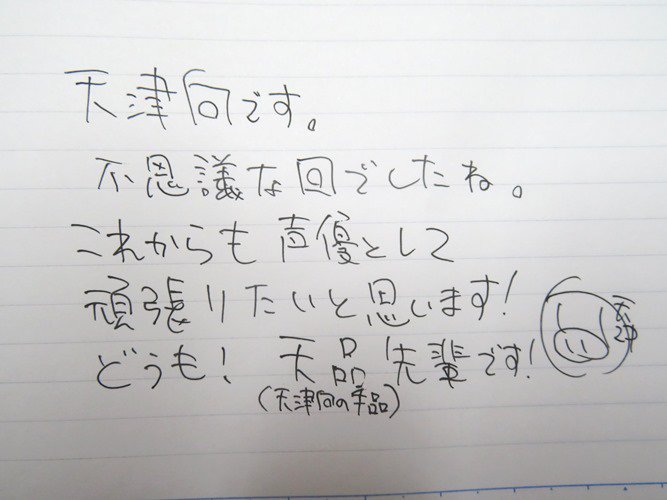 天津向です。
不思議な回でしたね。
これからも声優として
頑張りたいと思います!
どうも! 天品先輩です!
(天津向の手品)
天津